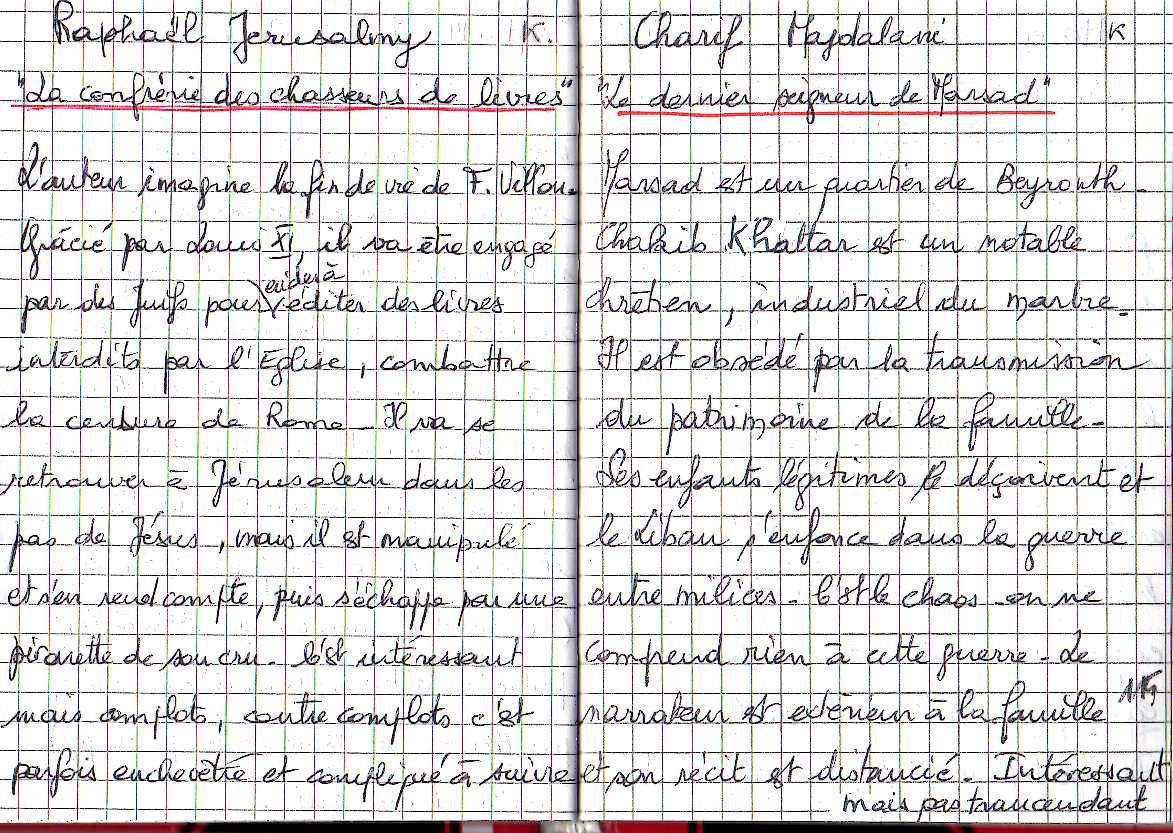 Raphaël Jerusalmy K.
"La confrérie des chasseurs de livres"
L'auteur imagine la fin de vie de F. Villon.
Grâcié par Louis XI, il va être engagé
aider à
par des Juifs pour éditer des livres
interdits par l'Eglise, combattre
la censure de Rome - Il va se
retrouver à Jérusalem dans les
pas de Jésus, mais il est manipulé
et s'en rend compte, puis s'échappe par une
pirouette de son cru - C'est intéressant
mais complots, contre complots c'est
parfois enchevêtré et compliqué à suivre
Charif Majdalani K
"Le dernier seigneur de Marsad"
Marsad est un quartier de Beyrouth -
Chakib Khattar est un notable
chrétien, industriel du marbre -
Il est obsédé par la transmission
du patrimoine de la famille -
Ses enfants légitimes le déçoivent et
le Liban s'enfonce dans la guerre
entre milices - C'est le chaos - on ne
comprend rien à cette guerre - Le
narrateur est extérieur à la famille
et son récit est distancié - Intéressant
mais pas trancendant